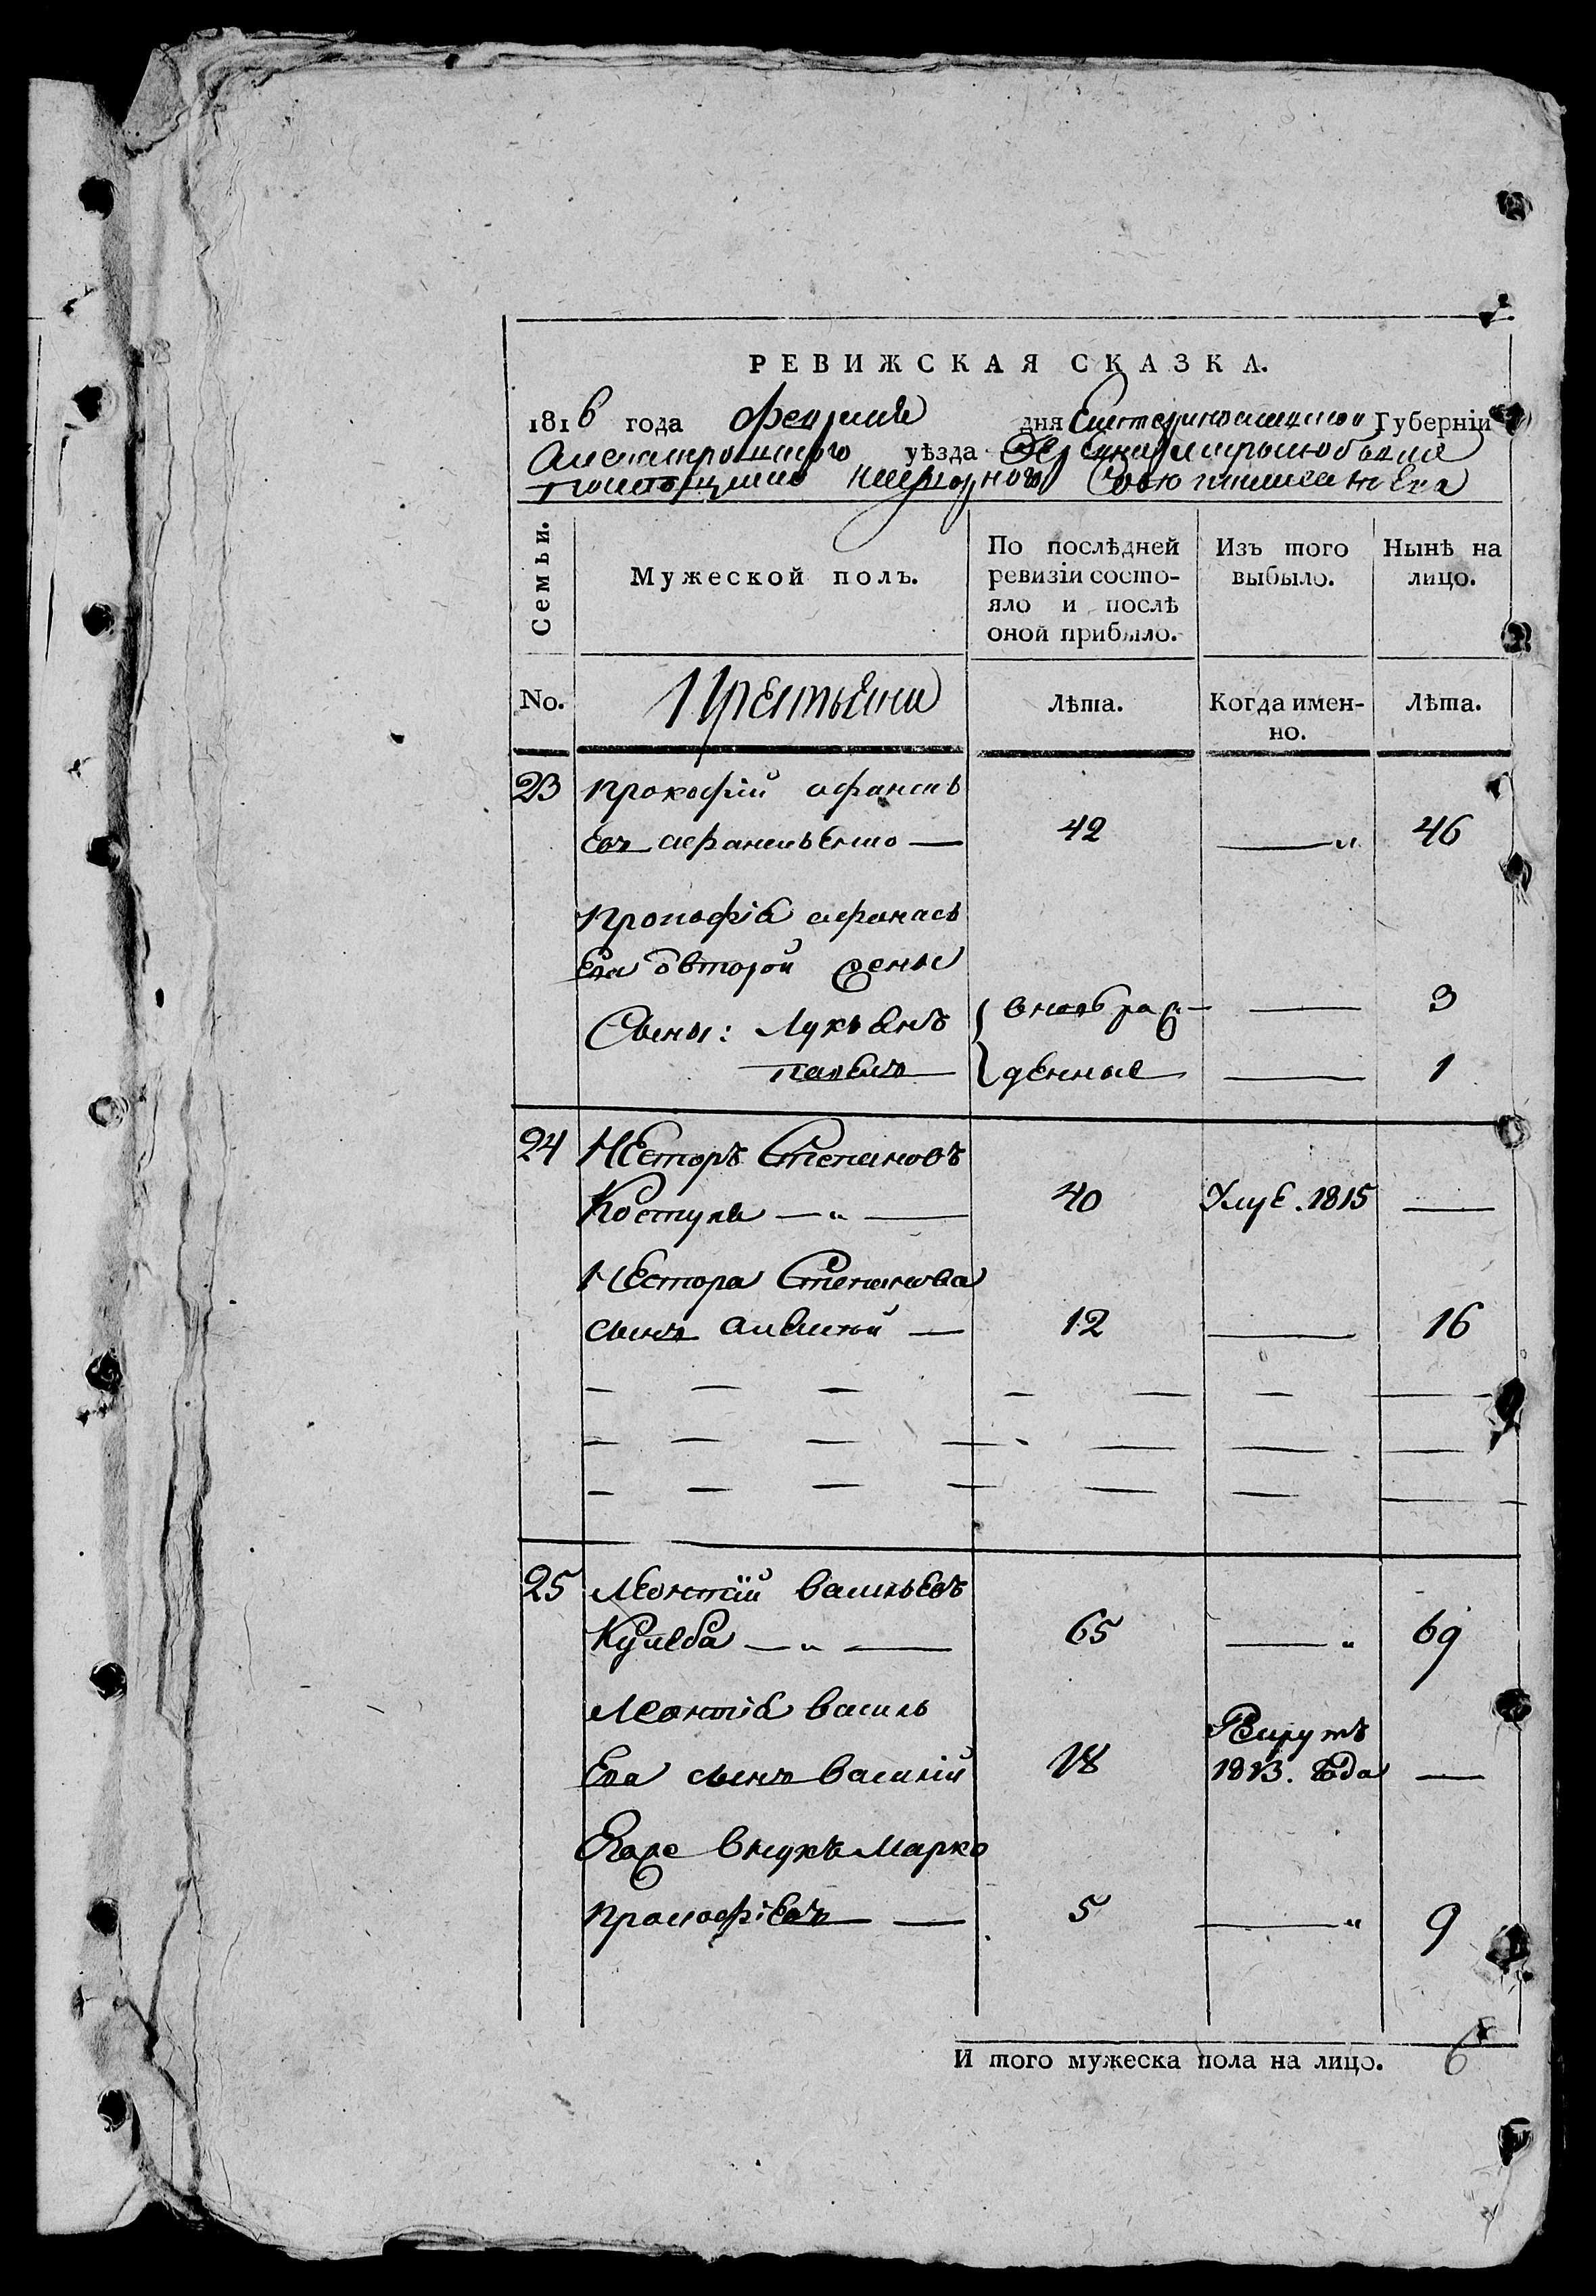 РЕВИЖСКАЯ СКАЗКА.
1816 года Февраля дня Екатеринославской Губерніи
Александровского уѣзда
помещика
Семьи.
Мужеской полъ.
По послѣдней ревизіи состо-
яло и послѣ
оной прибыло.
Изъ того
выбыло.
Нынѣ на
лицо.
No.
Крестьяни
Лѣта.
Когда имен-
но.
Лѣта.
23 Прокофій афанась
евъ афанасьенко — 42 — 46
Прокофія афанась
ева отвторой жены
Сыны: Лукьянъ вновь раж — 3
павелъ денные — 1
24 Несторъ Степановъ
Костуля — 40 Умре. 1815 —
Нестора Степанова
сынъ алексей — 12 — 16
25 Леонтій васильевъ
Кулеба — 65 — 69
Леонтія василь
Рекрутъ
ева сынъ василій 18 1813. года —
Егоже внукъ Марко
Прокофіевъ — 5 — 9
И того мужеска пола на лицо. 6